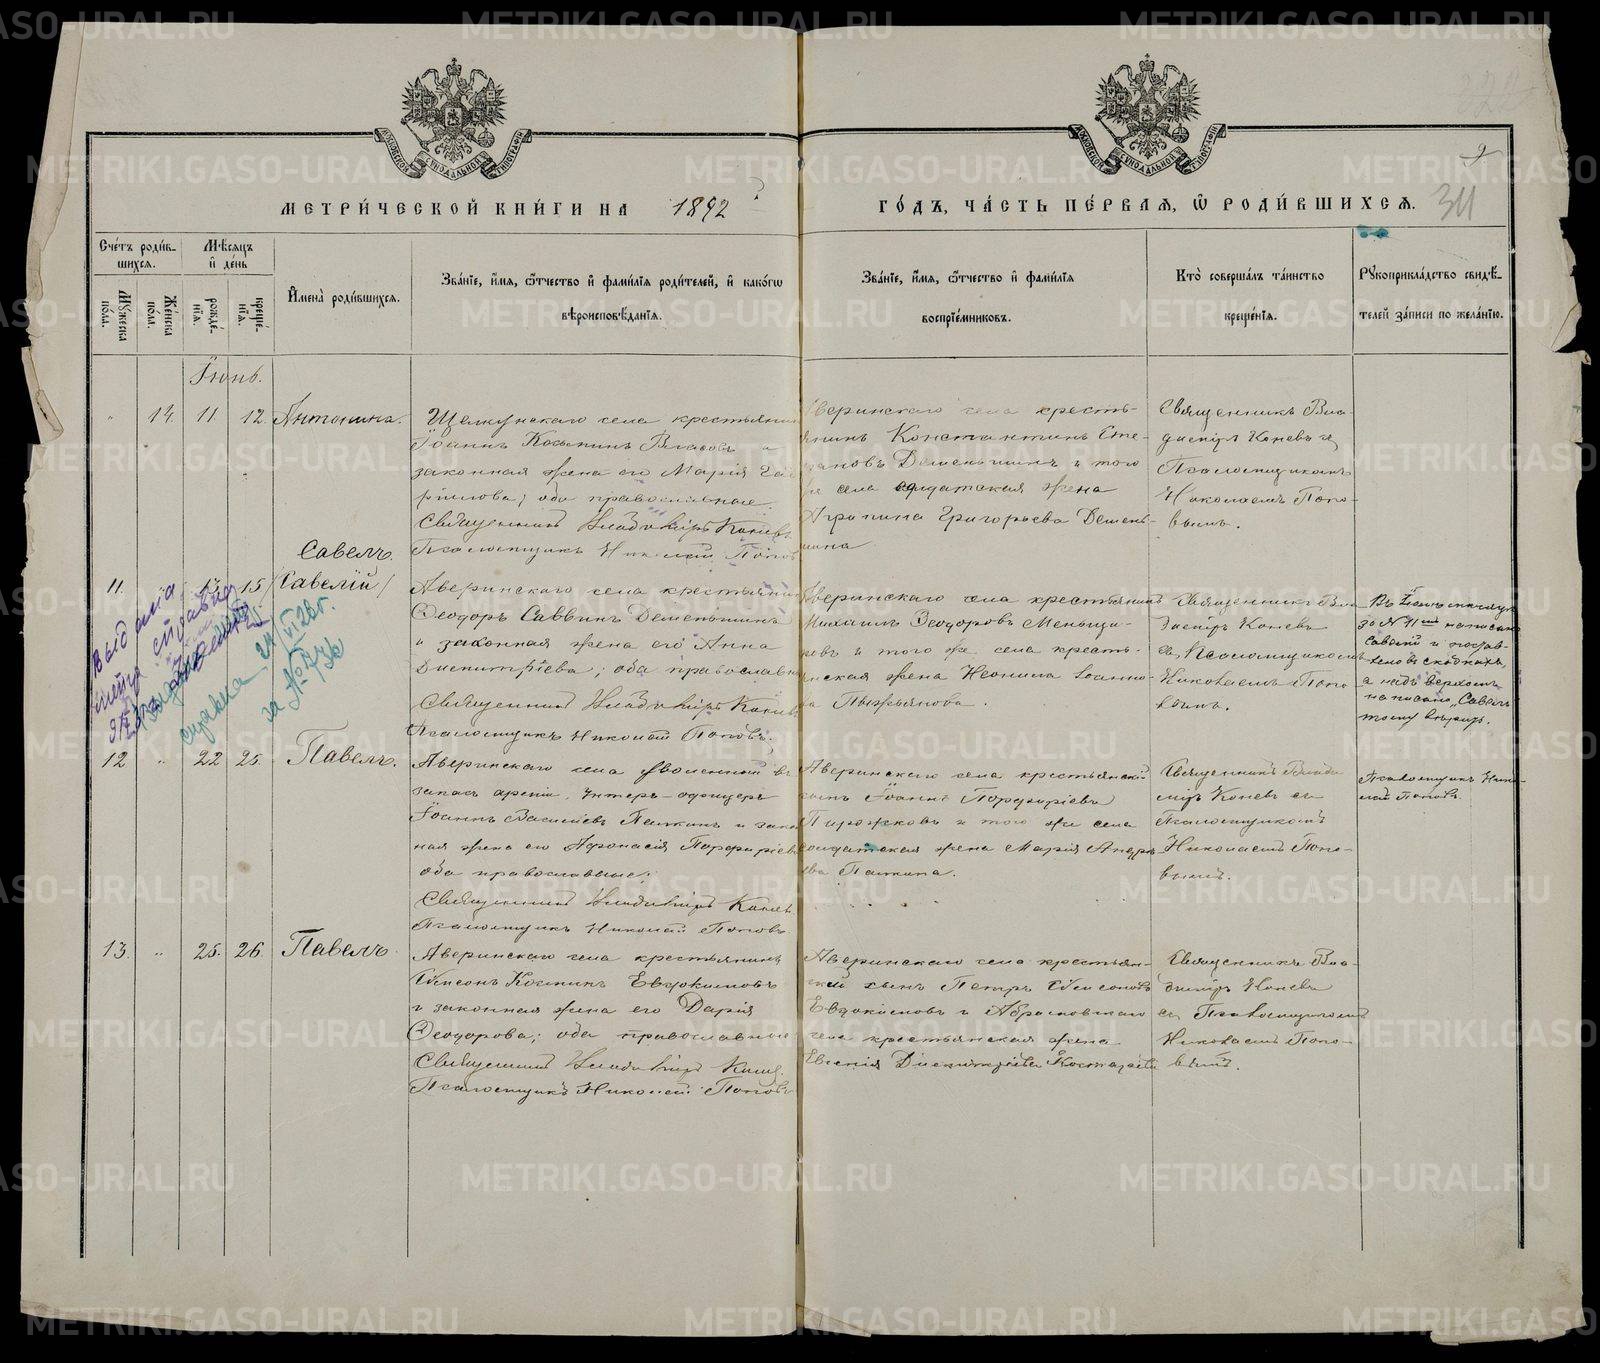 МЕТРИ́ЧЕСКОЙ КНИ́ГИ НА 1892
ГО́ДЪ, ЧА́СТЬ ПЕ́РВАЯ, Ѡ РОДИ́ВШИХСЯ.
34
Сче́тъ роди́в-
шихся.
Му́жеска по́ла.
Же́нска по́ла.
Мѣ́сяцъ
и де́нь
рожде́-
нїя.
креще́-
нїя.
И҆мена̀ роди́вшихся.
Зва́нїе, и҆́мя, ѻ҆́тчество и҆ фамі́лїя роди́телей, и҆ како́гѡ
вѣроисповѣ́данїя.
Зва́нїе, и҆́мя, ѻ҆́тчество и҆ фамі́лїя
воспрїе́мниковъ.
Кто̀ соверша́лъ та́инство
креще́нїя.
Рукоприкла́дство свидѣ́-
телей за́писи по жела́нїю.
Іюнь.
14. 11 12. Антонина.
Щелкунскаго села крестьянин
Іоаннъ Козьминъ Власовъ и
законная жена его Марія Гав
рилова; оба православные.
Священникъ Владиміръ Коневъ
Псаломщикъ Николай Попов
Аверинскаго села кресть-
янинъ Константинъ Сте-
пановъ Деменьшинъ и того
же села солдатская жена
Агрипина Григорьева Демень-
шина
Священникъ Вла-
диміръ Коневъ съ
Псаломщикомъ
Николаемъ Попо-
вымъ.
Савелъ.
11. 13 15 (Савелій)
Аверинскаго села крестьянин
Ѳеодоръ Саввинъ Деменьшинъ
и законная жена его Анна
Димитріева; оба православн
Священникъ Владиміръ Конев
Псаломщикъ Николай Поповъ.
Аверинскаго села крестьянинъ
Михаилъ Ѳеодоровъ Меньши-
ковъ и того же села кресть-
янская жена Неонила Іоанно-
ва Пыжьянова.
Священникъ Вла
диміръ Коневъ
съ Псаломщикомъ
Николаемъ Попо
вымъ.
Въ Іюнѣ мѣсяцѣ
за № 11ый написан
Савелій и постав-
лено въ скобкахъ,
а надъ верхомъ
написано „Савелъ
тому вѣрить.
Псаломщикъ Нико-
лай Поповъ.
Выдана
справка 24/VI 28г.
за № 736
12 " 22 25. Павелъ.
Аверинскаго села уволенный въ
запасъ арміи, унтеръ-офицеръ
Іоаннъ Васильевъ Паткинъ и закон
ная жена его Афонасія Порфиріева
оба православные.
Священникъ Владиміръ Конев
Псаломщикъ Николай Поповъ
Аверинскаго села крестьянскій
сынъ Іоаннъ Порфиріевъ
Пирожковъ и того же села
солдатская жена Марія Андре
ева Паткина.
Священникъ Влади
міръ Коневъ съ
Псаломщикомъ
Николаемъ Попо-
вымъ.
13. " 25. 26. Павелъ.
Аверинскаго села крестьянинъ
Симеонъ Козминъ Евдокимовъ
и законная жена его Дарія
Ѳеодорова; оба православные
Священникъ Владиміръ Конев.
Псаломщикъ Николай Поповъ
Аверинскаго села крестьян-
скій сынъ Петръ Симеоновъ
Евдокимовъ и Абрамовскаго
села крестьянская жена
Евгенія Димитріева
Священникъ Вла-
диміръ Коневъ
съ Псаломщикомъ
Николаемъ Попо-
вымъ.
METRIKI.GASO-URAL.RU